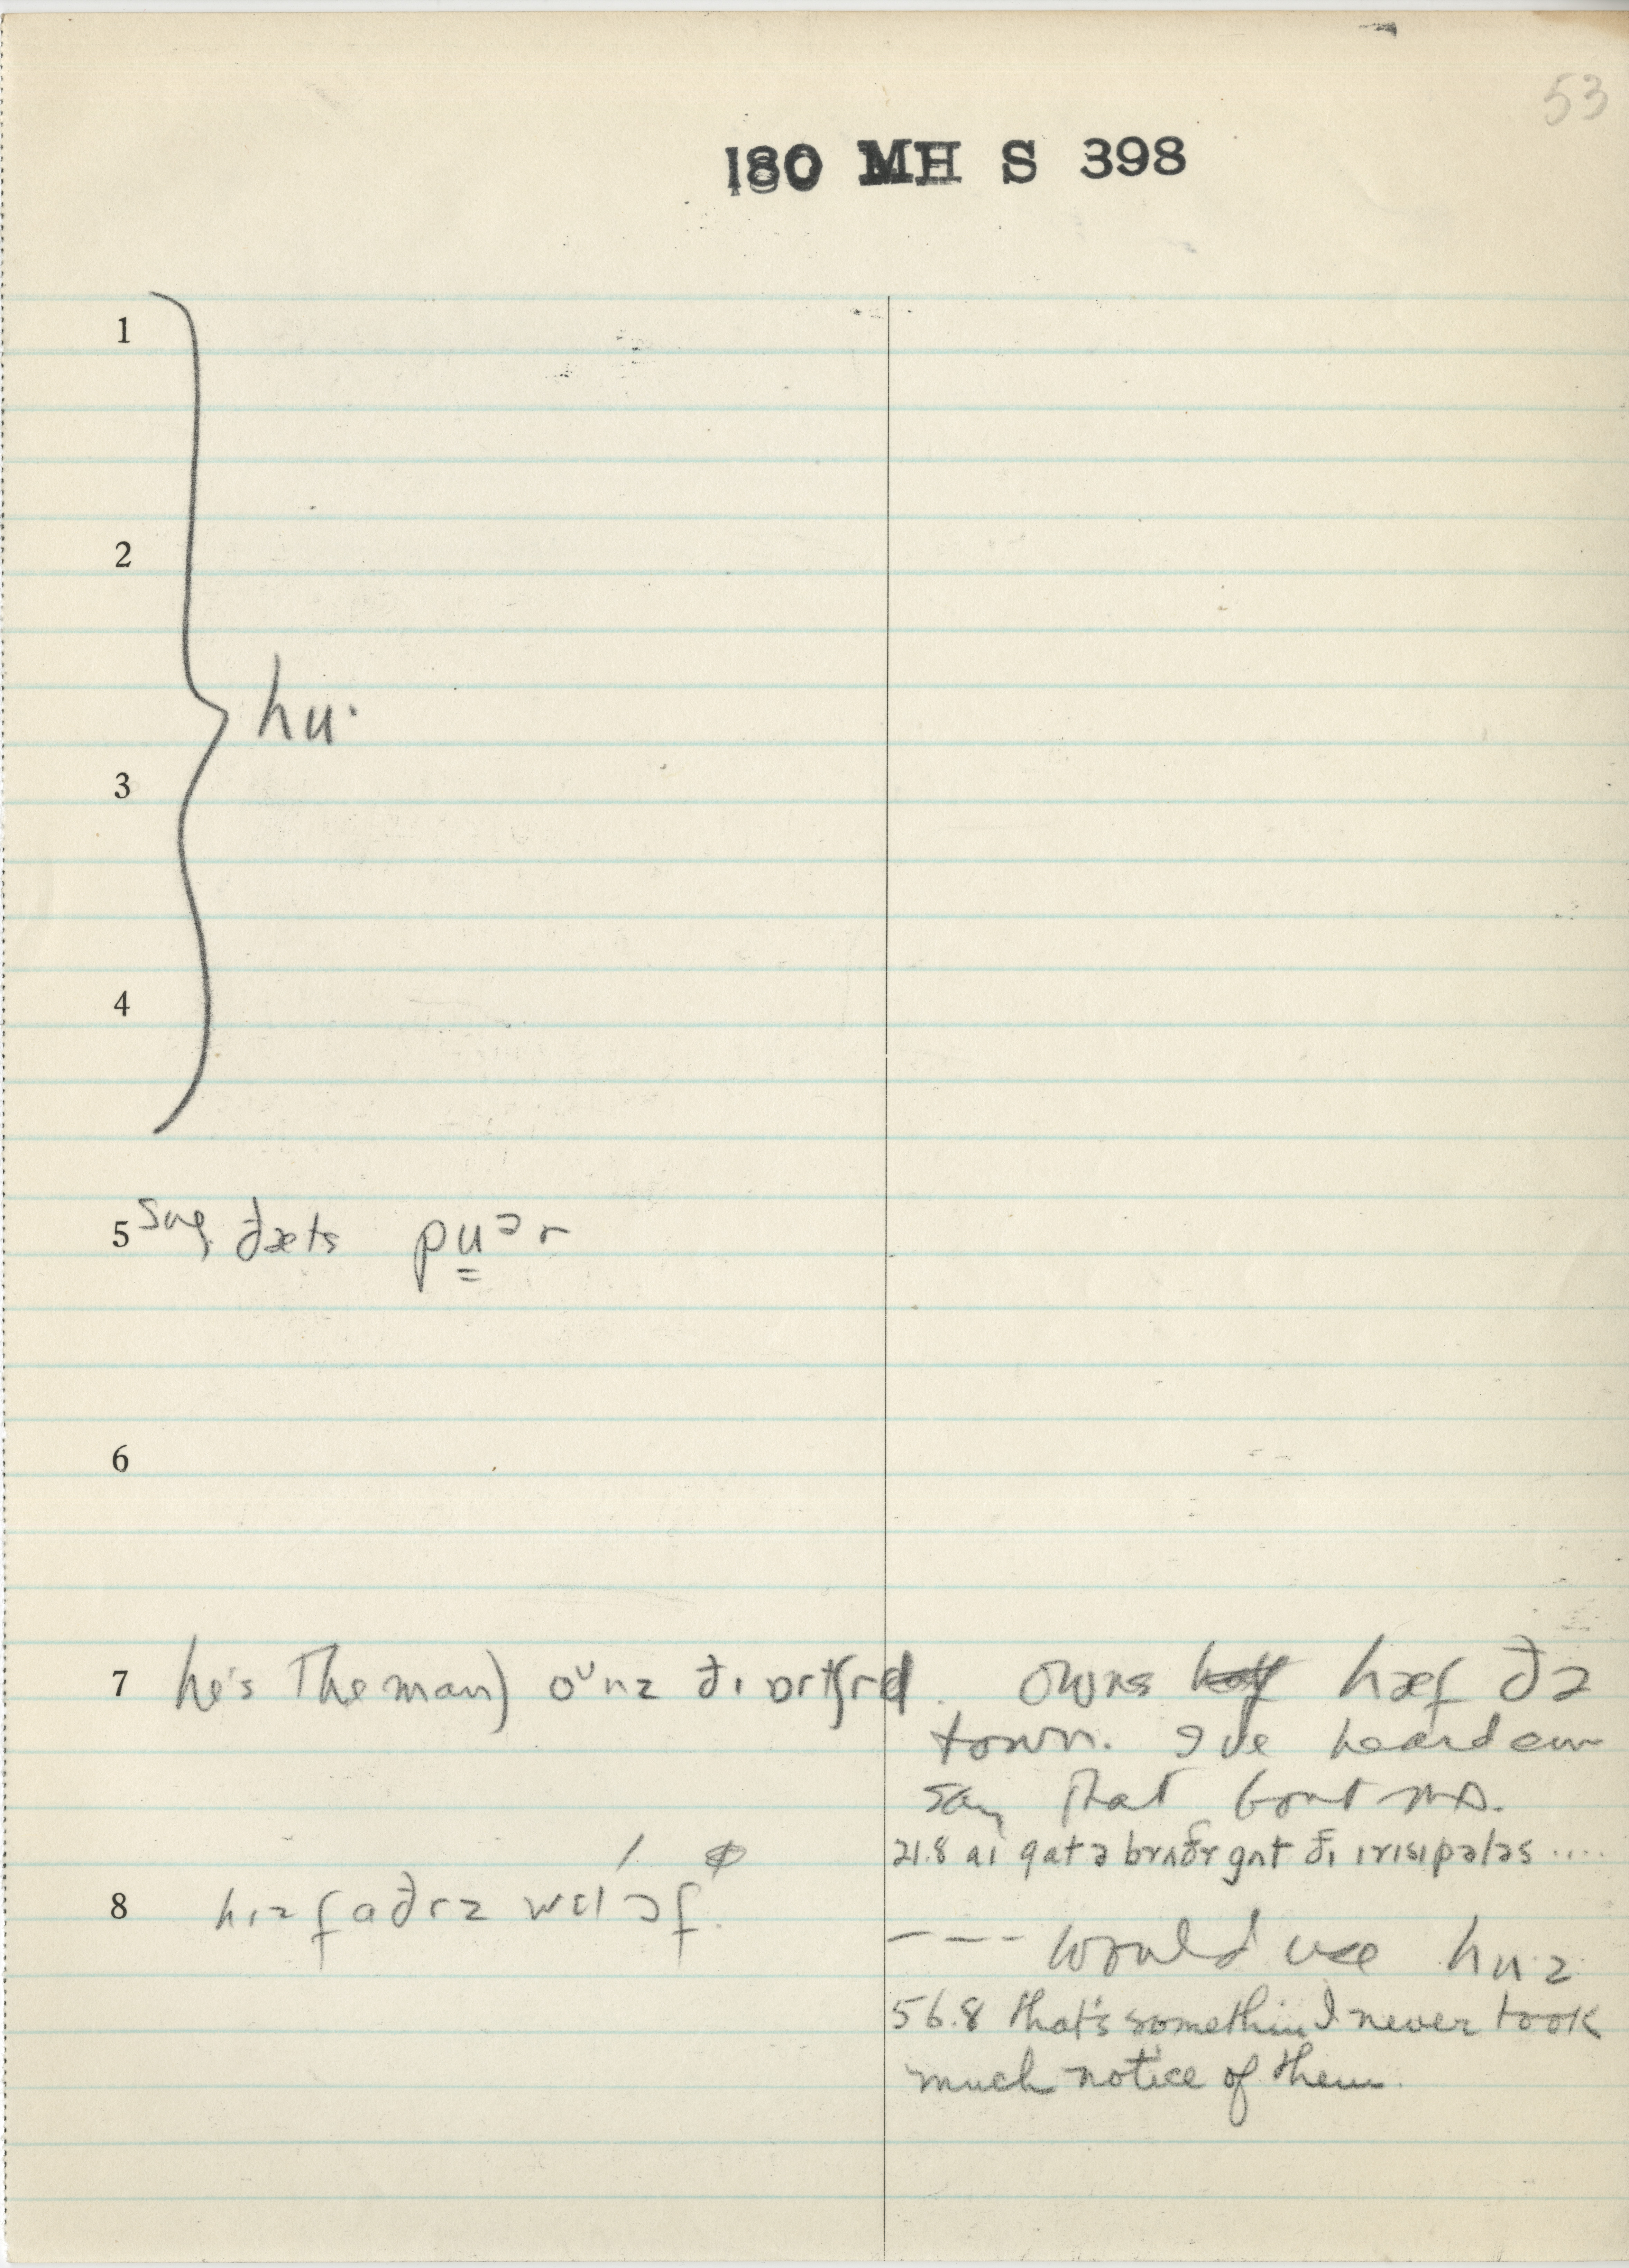 53
180 MH S 398
1
2
hu·
3
4
5 sug. ðæts pu̳ᵊr
6
7 he's the man) oᵘnz ðɪ ɒrtʃrd. owns hæf ðə
town. I've heard em
say that bout
21.8 aɪ gat ə brʌðr gʌt ðɪ ɪrɪsɪpələs ....
8 hɪz faðrz wɛl ɔf.
--- would use hu·z
56.8 that's somethin I never took
much notice of them.